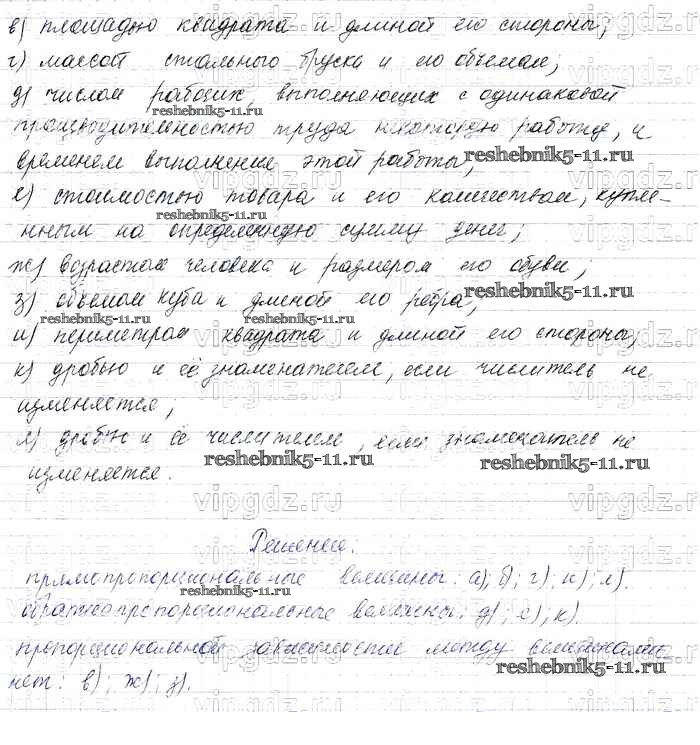 в) площадью квадрата и длиной его стороны;
г) массой стального бруска и его объемом;
д) числом рабочих, выполняющих с одинаковой
производительностью труда некоторую работу, и
временем выполнения этой работы;
е) стоимостью товара и его количеством, куплен-
нным на определенную сумму денег;
ж) возрастом человека и размером его обуви;
з) объемом куба и длиной его ребра;
и) периметром квадрата и длиной его стороны;
к) дробью и её знаменателем, если числитель не
изменяется;
л) дробью и её числителем, если знаменатель не
изменяется.
Решение.
прямопропорциональные величины: а); б); г); и); л).
обратнопропорциональные величины: д); е); к).
пропорциональной зависимости между величинами
нет: в); ж); з).
vipgdz.ru
reshebnik5-11.ru